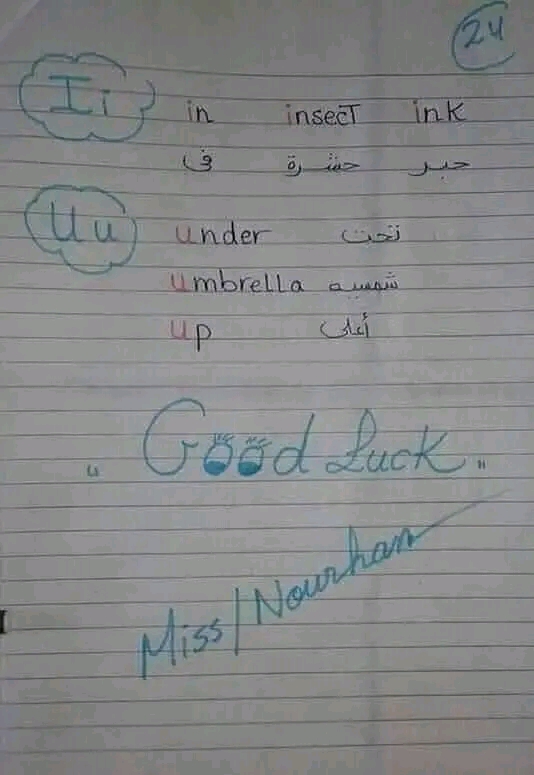 24
Ii in insect ink
فى حشرة حبر
Uu under تحت
umbrella شمسيه
up أعلى
"Good Luck"
Miss/Nourhan